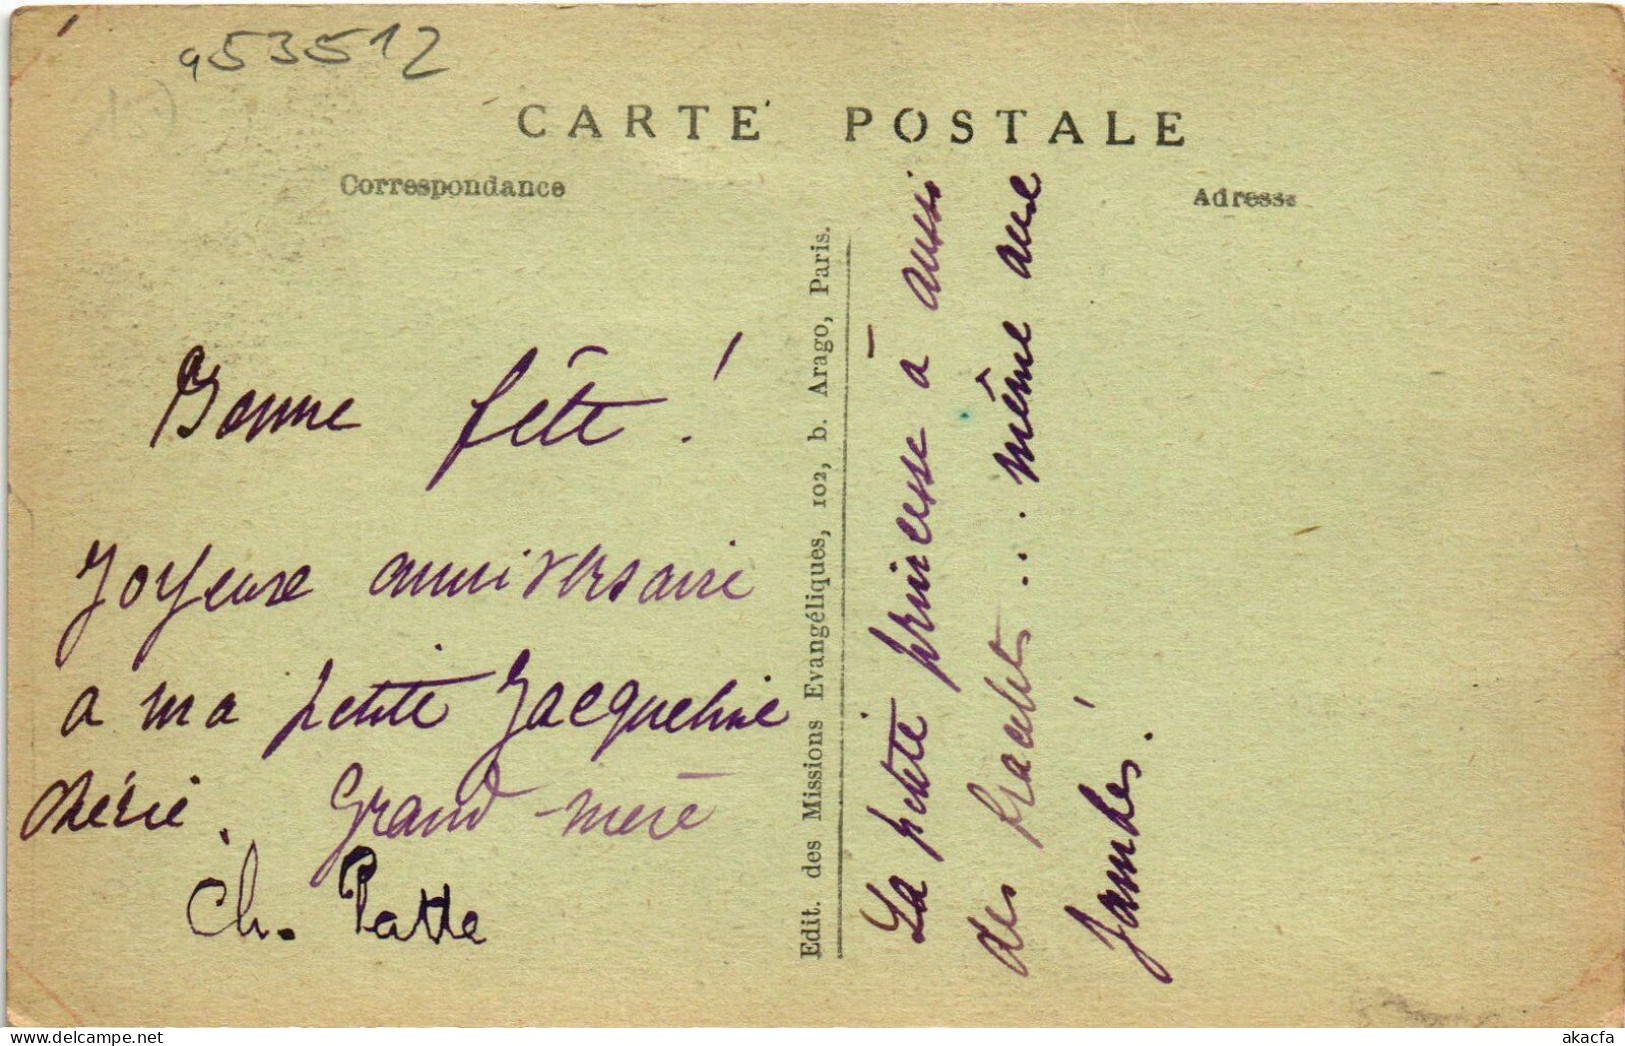 953512
CARTE POSTALE
Correspondance
Adresse
Bonne fête !
Joyeuse anniversaire
a ma petite Jacqueline
chérie. Grand-mère
Ch. Patte
Edit. des Missions Evangéliques, 102, b. Arago, Paris.
La petite princesse a aussi
des bracelets ... même aux
Jambes.
akacfa